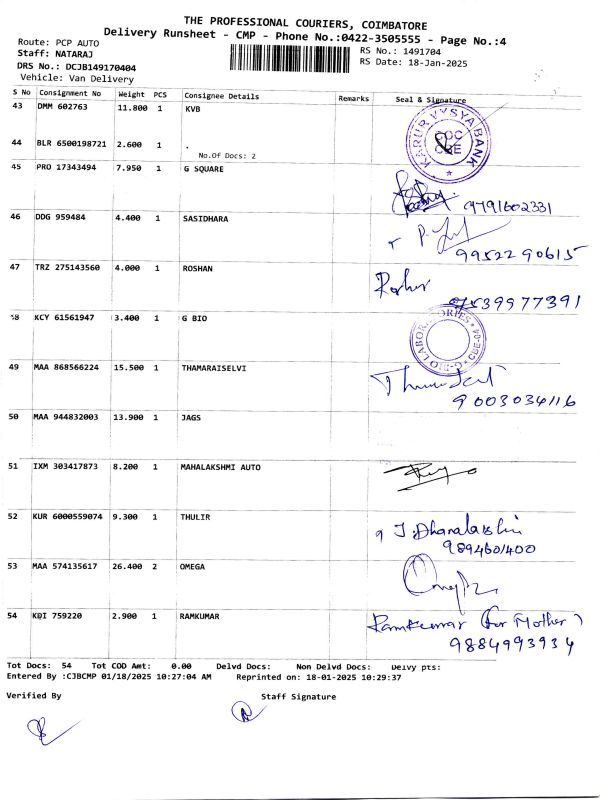 THE PROFESSIONAL COURIERS, COIMBATORE
Delivery Runsheet - CMP - Phone No.:0422-3505555 - Page No.:4
Route: PCP AUTO
RS No.: 1491704
Staff: NATARAJ
RS Date: 18-Jan-2025
DRS No.: DCJB149170404
Vehicle: Van Delivery
S No Consignment No Weight PCS Consignee Details Remarks Seal & Signature
43 DMM 602763 11.800 1 KVB
KARUR VYSYA BANK
44 BLR 6500198721 2.600 1 .
No.Of Docs: 2
45 PRO 17343494 7.950 1 G SQUARE
9791602331
46 DDG 959484 4.400 1 SASIDHARA
9952290615
47 TRZ 275143560 4.000 1 ROSHAN
7539977391
48 KCY 61561947 3.400 1 G BIO
49 MAA 868566224 15.500 1 THAMARAISELVI
9003034116
50 MAA 944832003 13.900 1 JAGS
51 IXM 303417873 8.200 1 MAHALAKSHMI AUTO
52 KUR 6000559074 9.300 1 THULIR
J. Dhanalakshmi
9894601400
53 MAA 574135617 26.400 2 OMEGA
54 KDI 759220 2.900 1 RAMKUMAR
Ramkumar (for Mother)
9884993934
Tot Docs: 54 Tot COD Amt: 0.00 Delvd Docs: Non Delvd Docs: Delvy pts:
Entered By :CJBCMP 01/18/2025 10:27:04 AM Reprinted on: 18-01-2025 10:29:37
Verified By Staff Signature